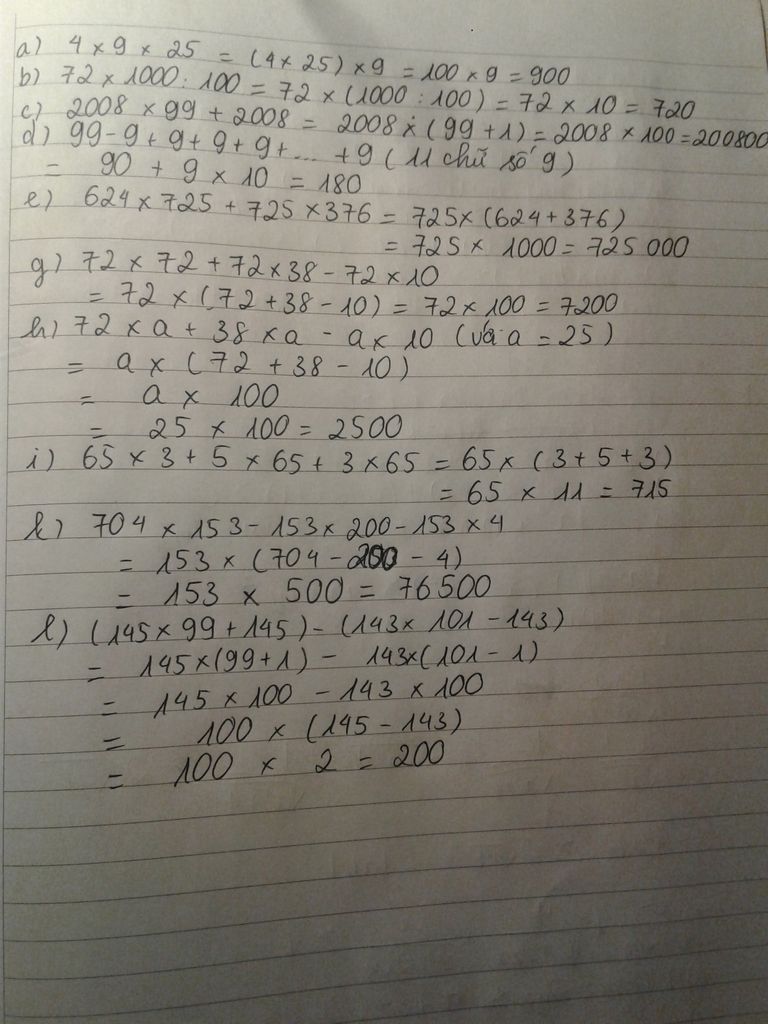 a) 4 × 9 × 25 = (4 × 25) × 9 = 100 × 9 = 900
b) 72 × 1000 : 100 = 72 × (1000 : 100) = 72 × 10 = 720
c) 2008 × 99 + 2008 = 2008 × (99 + 1) = 2008 × 100 = 200800
d) 99 - 9 + 9 + 9 + 9 + ... + 9 (11 chữ số 9)
= 90 + 9 × 10 = 180
e) 624 × 725 + 725 × 376 = 725 × (624 + 376)
= 725 × 1000 = 725 000
g) 72 × 72 + 72 × 38 - 72 × 10
= 72 × (72 + 38 - 10) = 72 × 100 = 7200
h) 72 × a + 38 × a - a × 10 (với a = 25)
= a × (72 + 38 - 10)
= a × 100
= 25 × 100 = 2500
i) 65 × 3 + 5 × 65 + 3 × 65 = 65 × (3 + 5 + 3)
= 65 × 11 = 715
k) 704 × 153 - 153 × 200 - 153 × 4
= 153 × (704 - 200 - 4)
= 153 × 500 = 76500
l) (145 × 99 + 145) - (143 × 101 - 143)
= 145 × (99 + 1) - 143 × (101 - 1)
= 145 × 100 - 143 × 100
= 100 × (145 - 143)
= 100 × 2 = 200